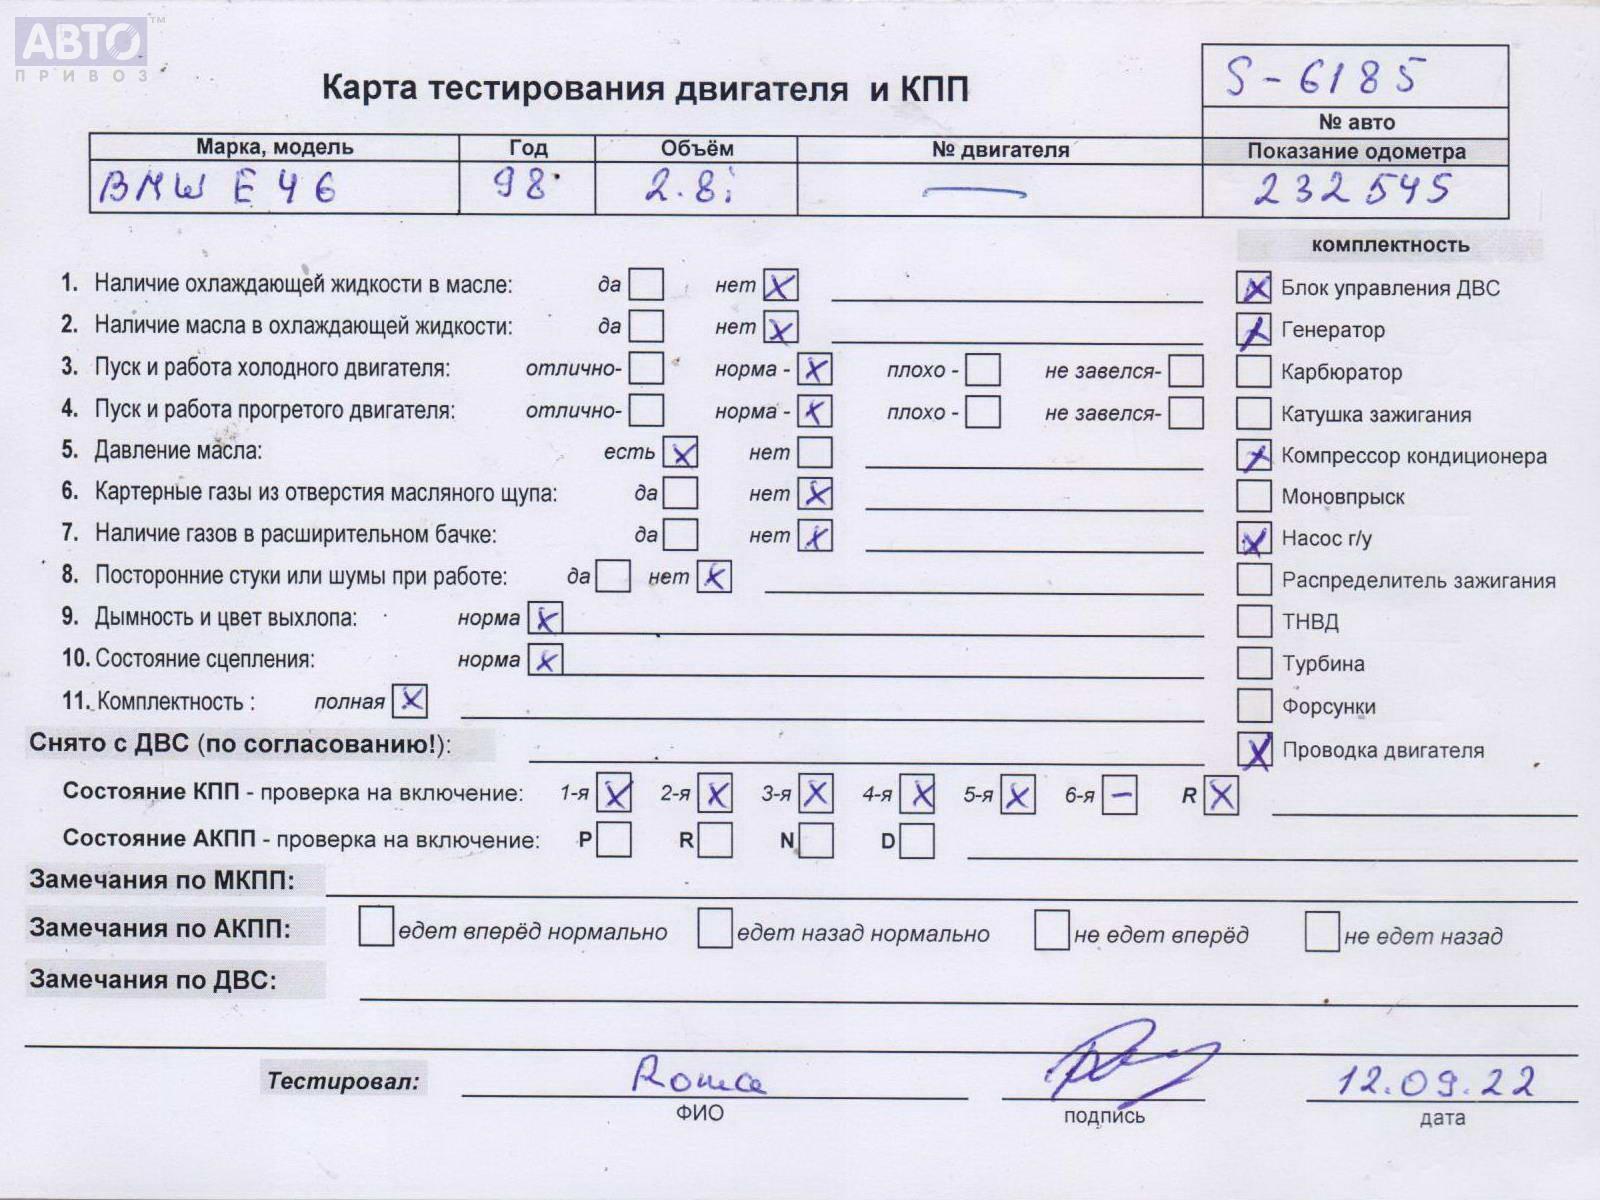 АВТО™
ПРИВОЗ
Карта тестирования двигателя и КПП
S-6185
№ авто
Марка, модель Год Объём № двигателя Показание одометра
BMW E46 98 2.8i — 232545
комплектность
1. Наличие охлаждающей жидкости в масле: да нет X
X Блок управления ДВС
2. Наличие масла в охлаждающей жидкости: да нет X
X Генератор
3. Пуск и работа холодного двигателя: отлично- норма - X плохо - не завелся-
Карбюратор
4. Пуск и работа прогретого двигателя: отлично- норма - X плохо - не завелся-
Катушка зажигания
5. Давление масла: есть X нет
X Компрессор кондиционера
6. Картерные газы из отверстия масляного щупа: да нет X
Моновпрыск
7. Наличие газов в расширительном бачке: да нет X
X Насос г/у
8. Посторонние стуки или шумы при работе: да нет X
Распределитель зажигания
9. Дымность и цвет выхлопа: норма X
ТНВД
10. Состояние сцепления: норма X
Турбина
11. Комплектность : полная X
Форсунки
Снято с ДВС (по согласованию!):
X Проводка двигателя
Состояние КПП - проверка на включение: 1-я X 2-я X 3-я X 4-я X 5-я X 6-я – R X
Состояние АКПП - проверка на включение: P R N D
Замечания по МКПП:
Замечания по АКПП: едет вперёд нормально едет назад нормально не едет вперёд не едет назад
Замечания по ДВС:
Тестировал: Roma 12.09.22
ФИО подпись дата